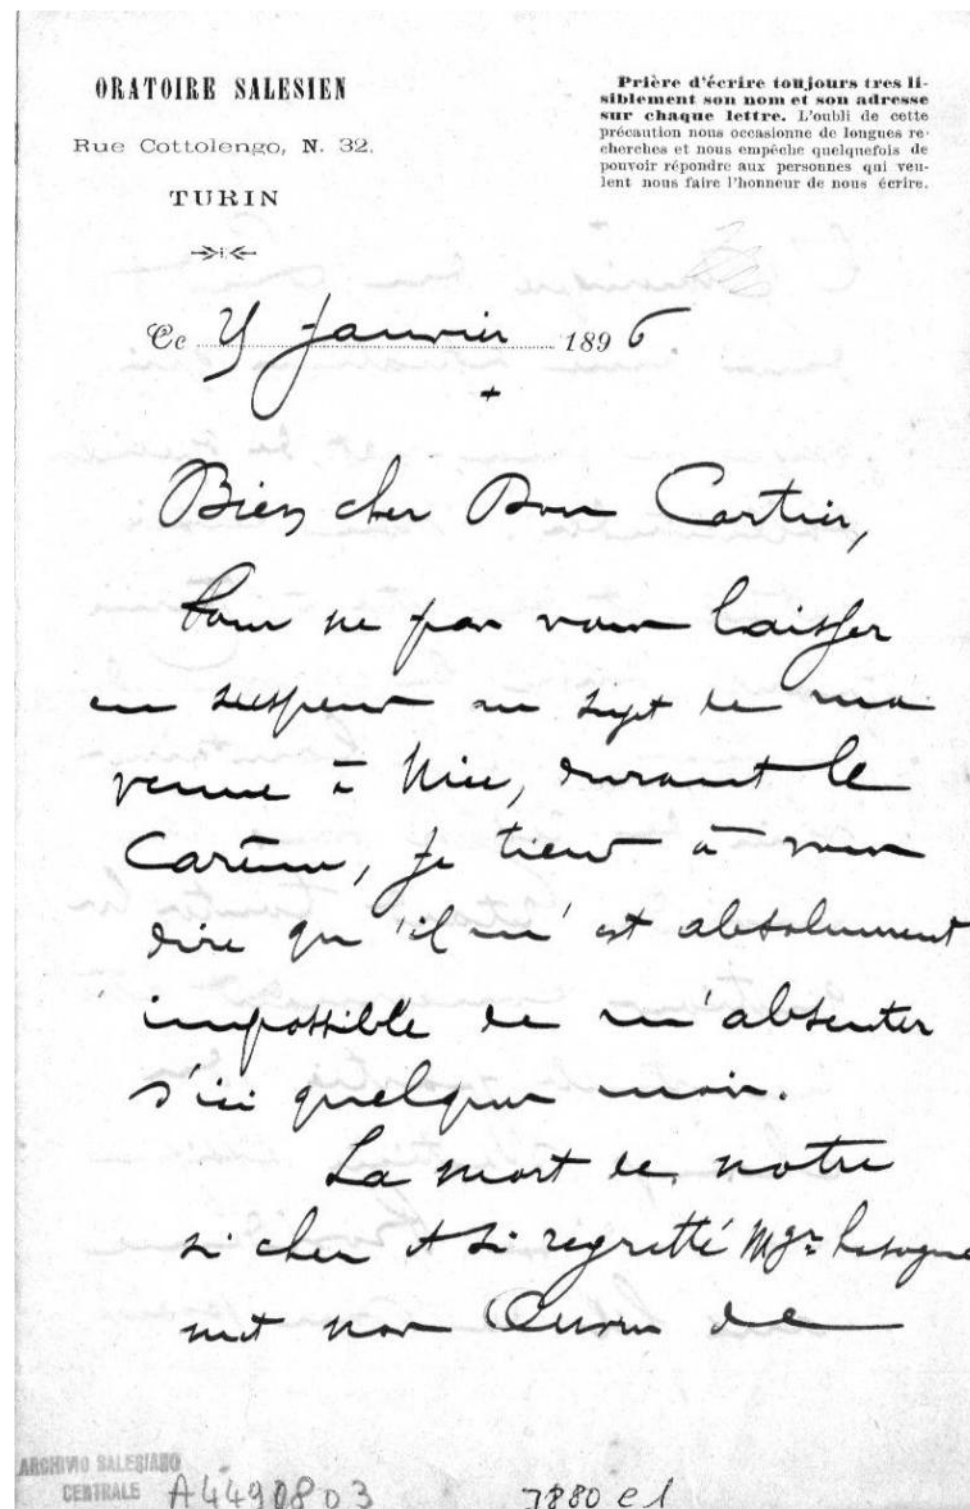 ORATOIRE SALESIEN
Rue Cottolengo, N. 32.
TURIN
Prière d'écrire toujours tres li-
siblement son nom et son adresse
sur chaque lettre. L'oubli de cette
précaution nous occasionne de longues re-
cherches et nous empêche quelquefois de
pouvoir répondre aux personnes qui veu-
lent nous faire l'honneur de nous écrire.
Ce Janvier 1896
+
Bien cher Don Cartier,
Pour ne pas vous laisser
en suspens au sujet de ma
venue à Nice, durant le
Carême, je tiens à vous
dire qu'il m'est absolument
impossible de m'absenter
d'ici quelques mois.
La mort de notre
si cher et si regretté Mgr Lasagna
met nos Œuvres de
ARCHIVIO SALESIANO
CENTRALE
A4490803
3880 e 1